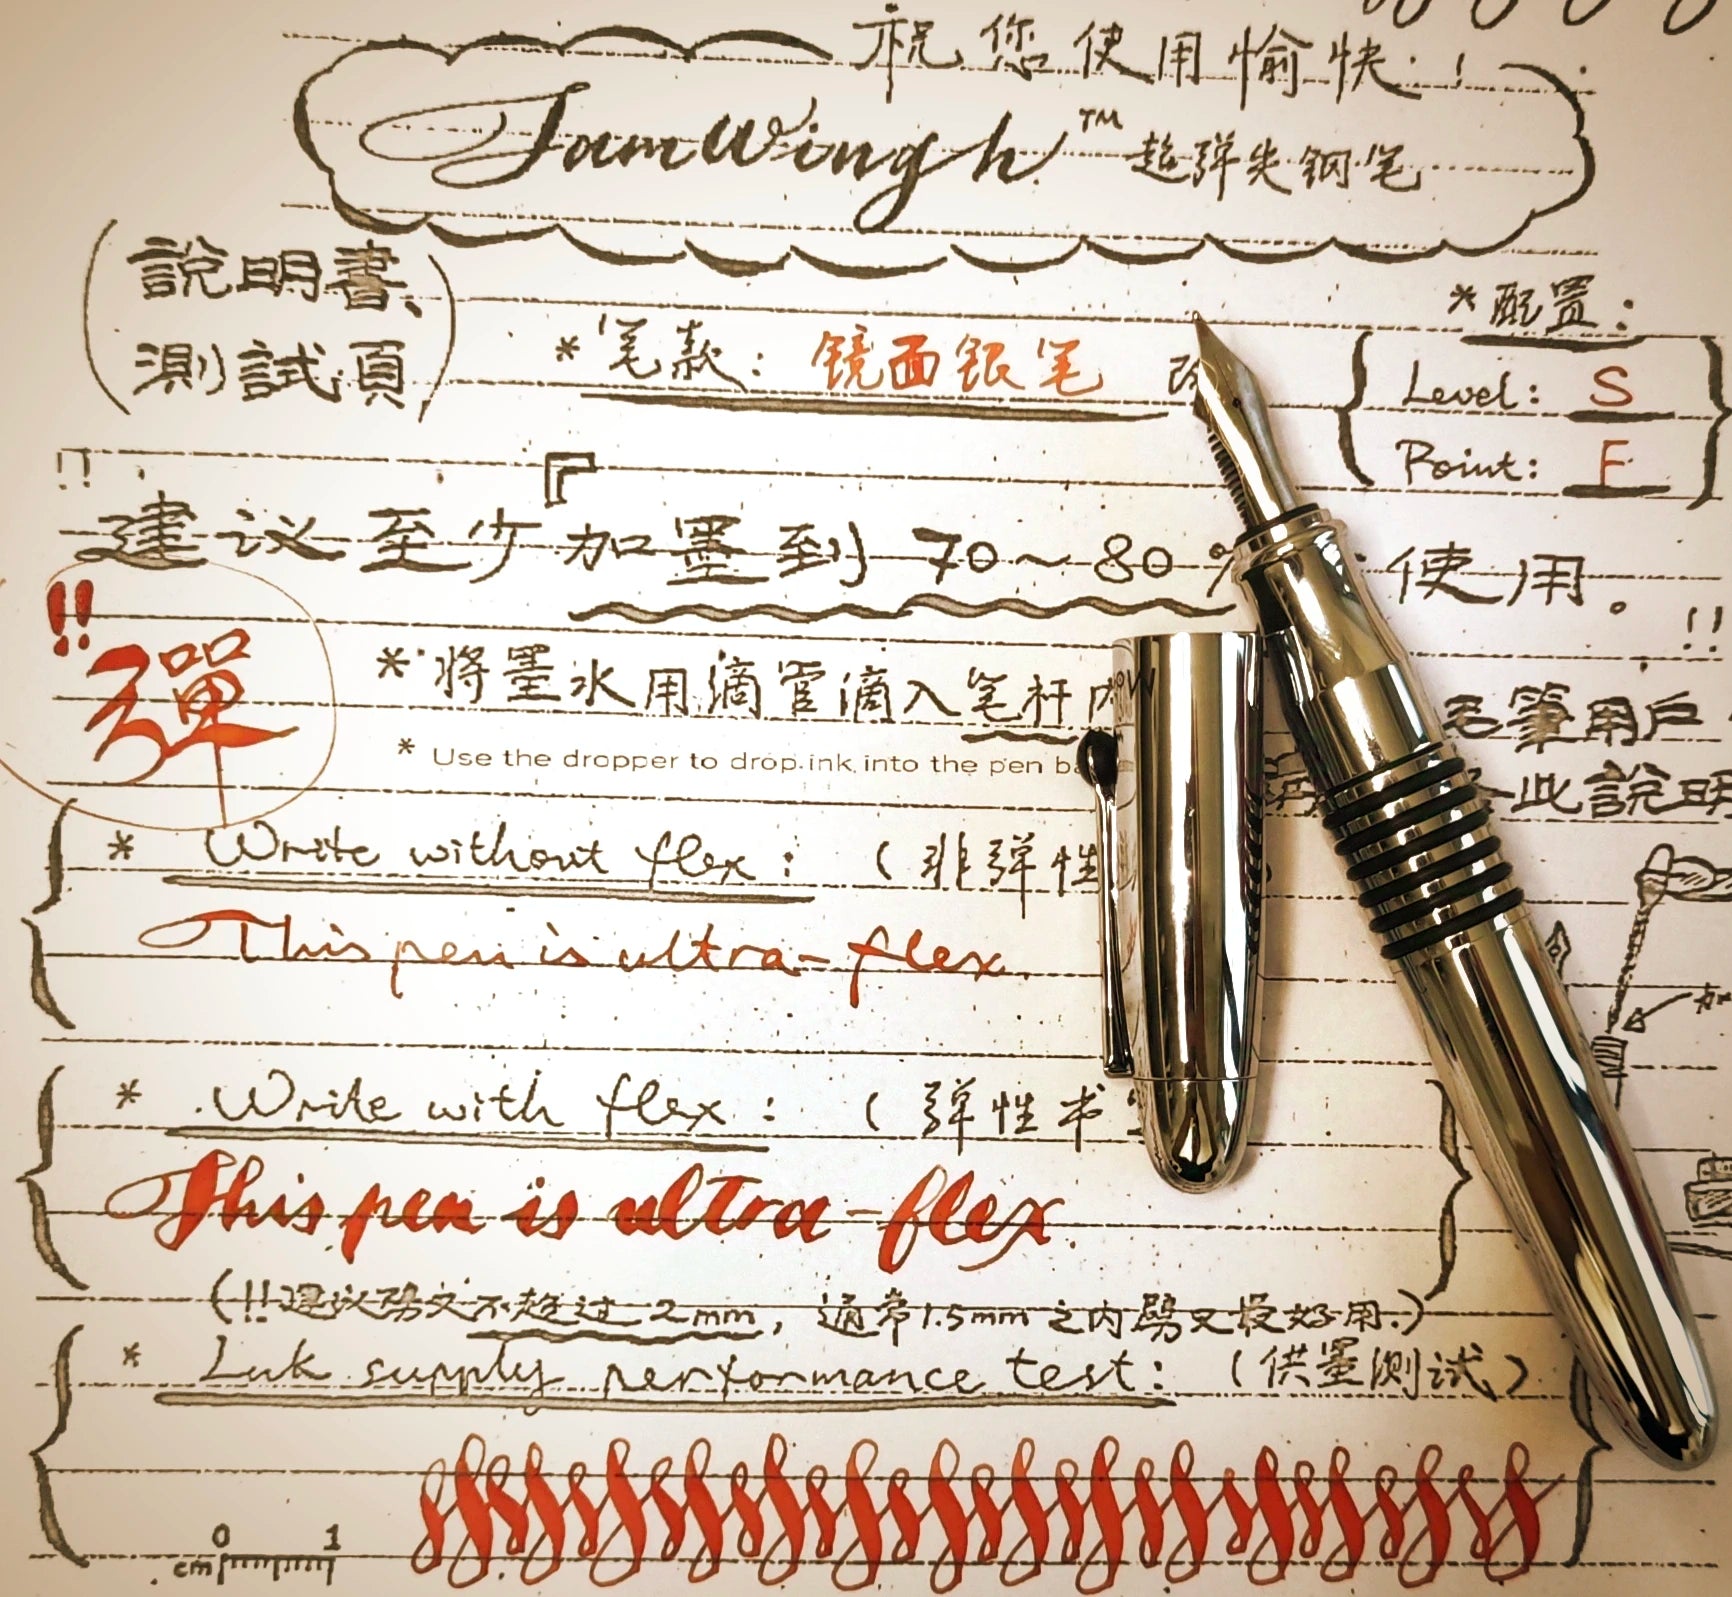 祝您使用愉快!
SamWingh™ 超弹尖钢笔
(說明書、
測試頁)
*笔款: 镜面银笔
*配置:
Level: S
Point: F
!!
建议至少『加墨到 70~80%
使用。!!
!!彈
*將墨水用滴管滴入笔杆内
* Use the dropper to drop ink into the pen
毛筆用戶
此說明
* Write without flex: (非弹性
This pen is ultra-flex.
* Write with flex: (弹性书
This pen is ultra-flex.
(!!建议劈叉不超过2mm, 通常1.5mm之内劈叉最好用.)
* Ink supply performance test: (供墨测试)
0 1
cm